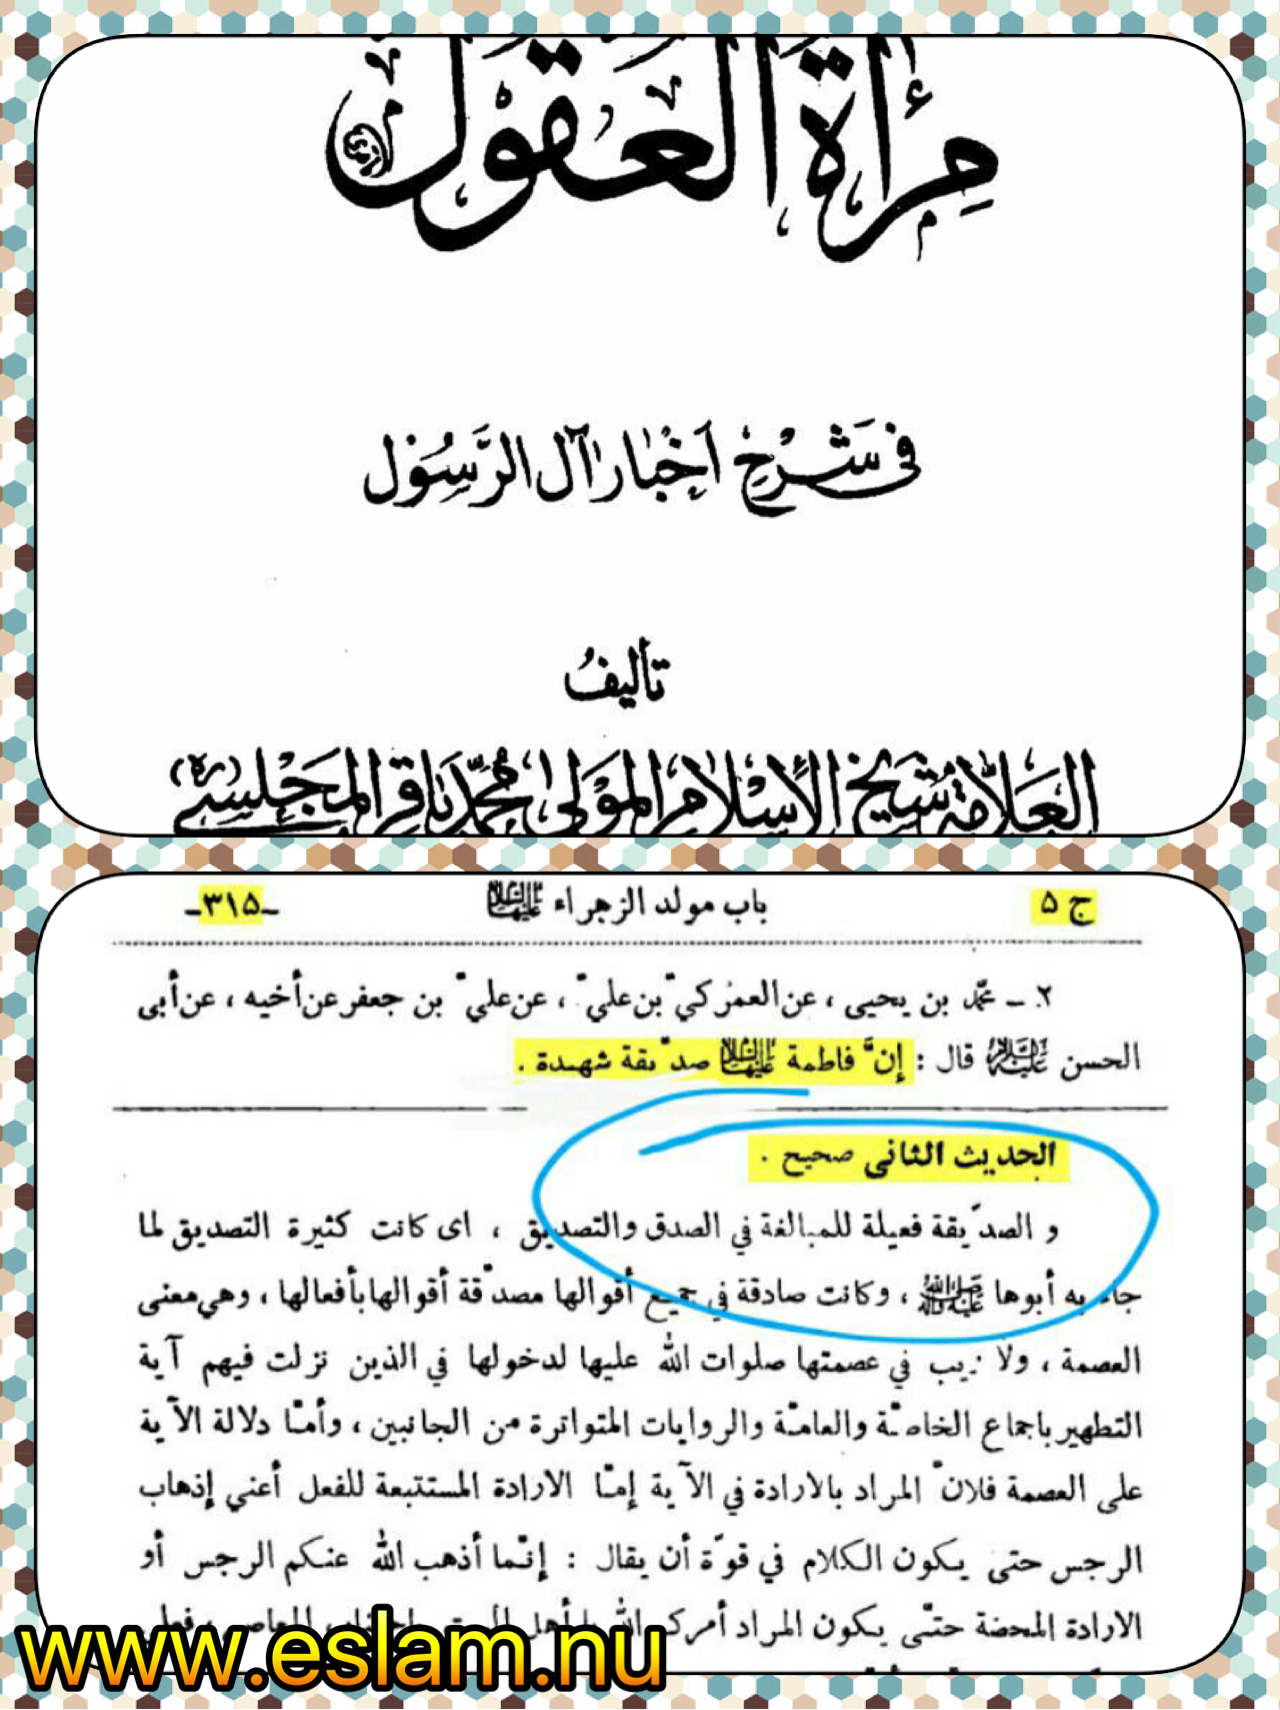 مِرآة العَقول
فى شَرْحِ اَخْبارِ آل الرَّسُوْل
تأليفُ
العلّامة شيخ الإسْلام المَوْلى محمّد باقر المَجْلسى (ره)
ج ۵
باب مولد الزهراء عليها السلام
ـ۳۱۵ـ
۲ ـ محمّد بن يحيى ، عن العمركيّ بن عليّ ، عن عليّ بن جعفر عن أخيه ، عن أبى
الحسن عليه السلام قال : إنَّ فاطمة عليها السلام صدّيقة شهيدة .
الحديث الثانى صحيح .
و الصدّيقة فعيلة للمبالغة في الصدق والتصديق ، اى كانت كثيرة التصديق لما
جاء به أبوها صلى الله عليه وآله ، وكانت صادقة في جميع أقوالها مصدّقة أقوالها بأفعالها ، وهي معنى
العصمة ، ولا ريب في عصمتها صلوات الله عليها لدخولها في الذين نزلت فيهم آية
التطهير باجماع الخاصّة والعامّة والروايات المتواترة من الجانبين ، وأمّا دلالة الآية
على العصمة فلانّ المراد بالارادة في الآية إمّا الارادة المستتبعة للفعل أعني إذهاب
الرجس حتى يكون الكلام في قوّة أن يقال : إنّما أذهب الله عنكم الرجس أو
الارادة المحضة حتّى يكون المراد أمركم الله
www.eslam.nu